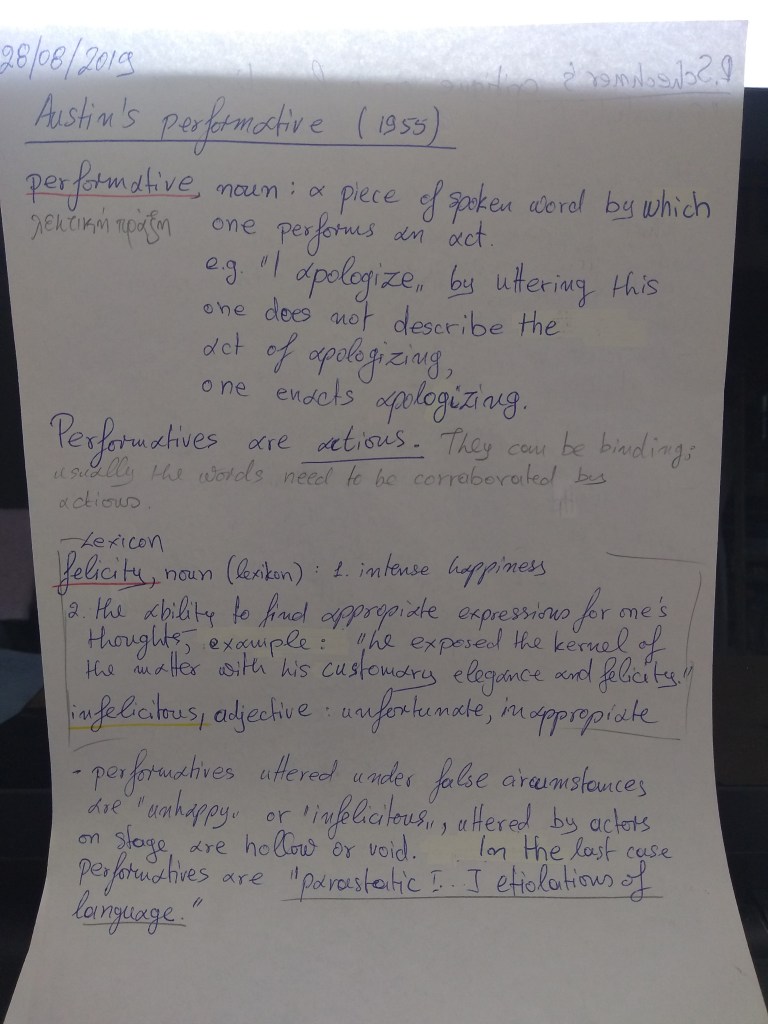 28/08/2019
R. Schechner's critique
Austin's performative (1955)
performative, noun: a piece of spoken word by which
λεκτική πράξη one performs an act.
e.g. "I apologize„ by uttering this
one does not describe the
act of apologizing,
one enacts apologizing.
Performatives are actions. They can be binding;
usually the words need to be corroborated by
actions.
Lexicon
felicity, noun (lexikon): 1. intense happiness
2. the ability to find appropiate expressions for one's
thoughts, example: "he exposed the kernel of
the matter with his customary elegance and felicity."
infelicitous, adjective: unfortunate, inappropiate
- performatives uttered under false circumstances
are "unhappy„ or "infelicitous„, uttered by actors
on stage are hollow or void. In the last case
performatives are "parastatic [...] etiolations of
language."